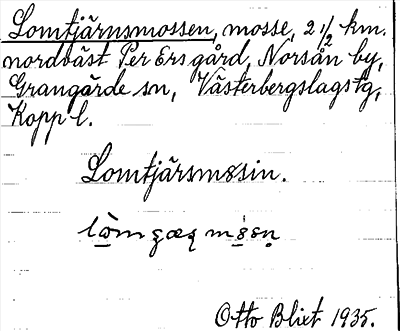 Lomtjärnsmossen, mosse, 2 1/2 km.
nordväst Per Ers gård, Norsån by,
Grangärde sn, Västerbergslags tg,
Kopp l.
Lomtjärsmosin.
Otto Blixt 1935.